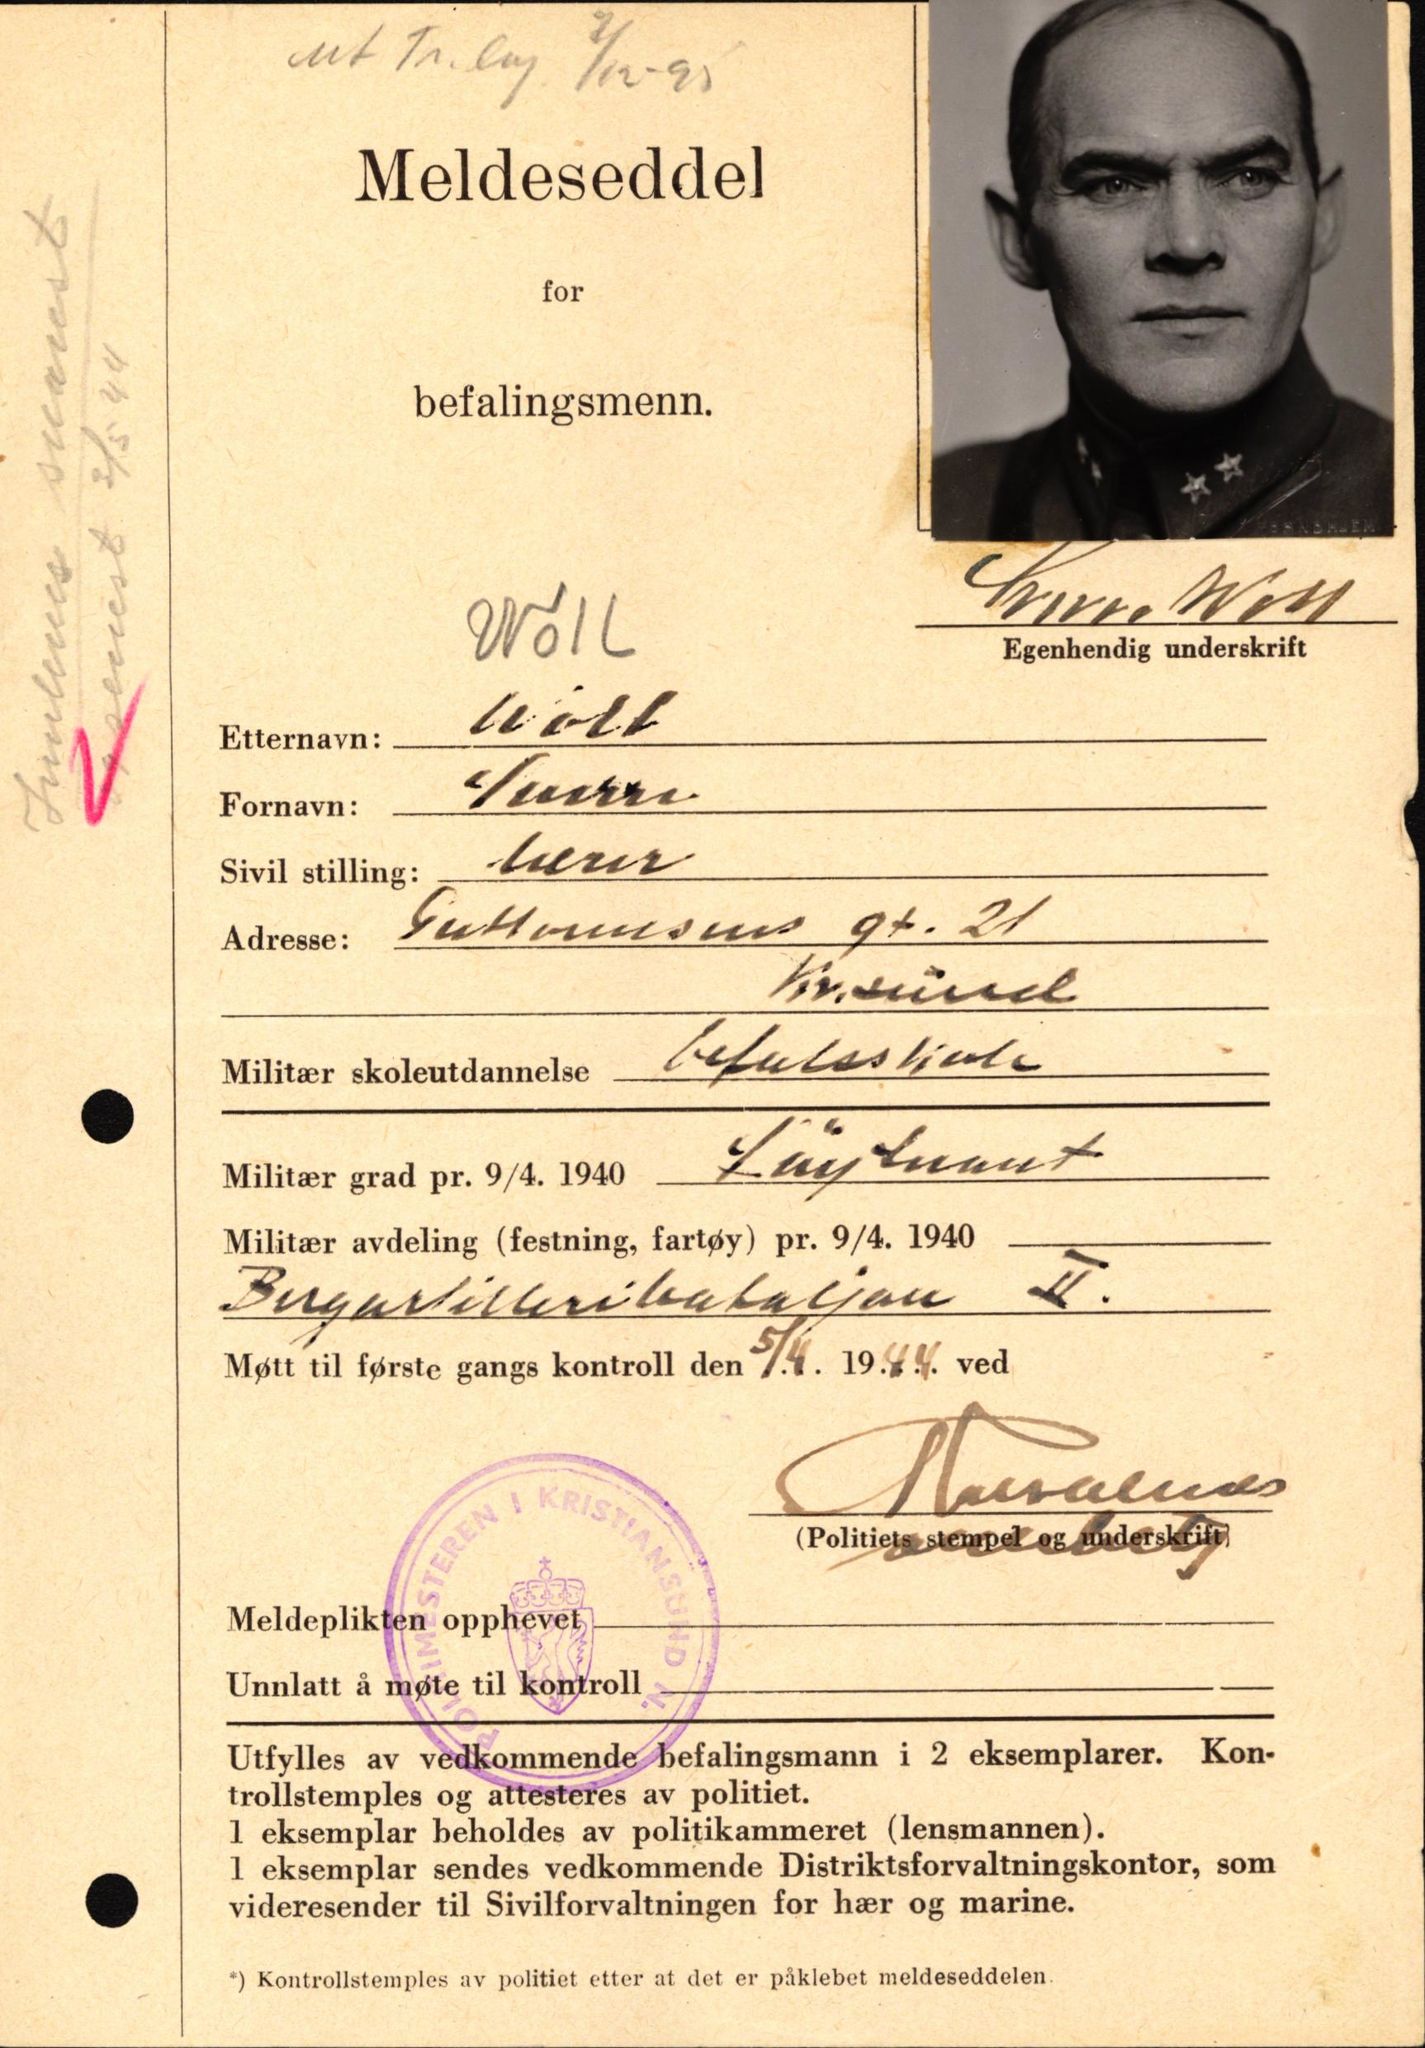 Meldeseddel
for
befalingsmenn.
Wöll
Egenhendig underskrift
Etternavn: Wöll
Fornavn: Snorre
Sivil stilling: lærer
Adresse: Guttormsens gt. 21
Kr.sund
Militær skoleutdannelse befalsskole
Militær grad pr. 9/4. 1940 Löytnant
Militær avdeling (festning, fartøy) pr. 9/4. 1940
Bergartilleribataljon II.
Møtt til første gangs kontroll den 5/4. 1944. ved
(Politiets stempel og underskrift)
POLITIMESTEREN I KRISTIANSUND N.
Meldeplikten opphevet
Unnlatt å møte til kontroll
Utfylles av vedkommende befalingsmann i 2 eksemplarer. Kon-
trollstemples og attesteres av politiet.
1 eksemplar beholdes av politikammeret (lensmannen).
1 eksemplar sendes vedkommende Distriktsforvaltningskontor, som
videresender til Sivilforvaltningen for hær og marine.
*) Kontrollstemples av politiet etter at det er påklebet meldeseddelen.